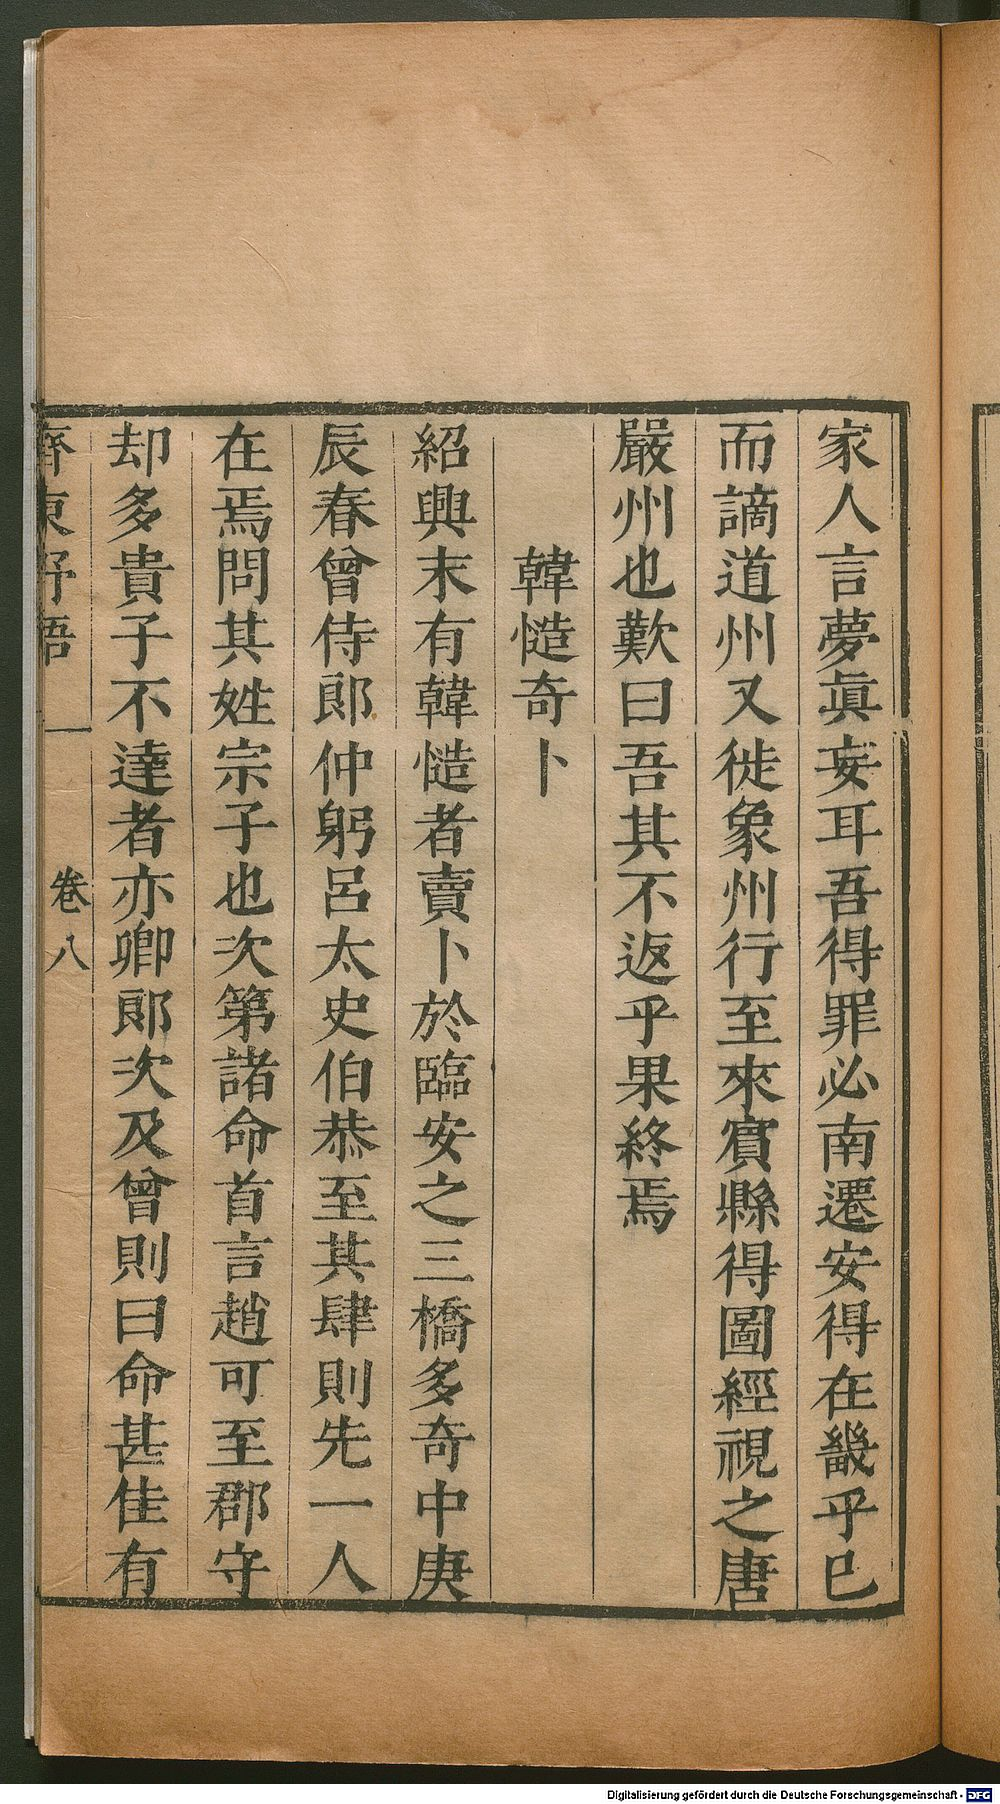 家人言夢眞妄耳吾得罪必南遷安得在畿乎巳
而謫道州又徙象州行至來賓縣得圖經視之唐
嚴州也歎曰吾其不返乎果終焉
韓慥奇卜
紹興末有韓慥者賣卜於臨安之三橋多奇中庚
辰春曾侍郎仲躬呂太史伯恭至其肆則先一人
在焉問其姓宗子也次第諸命首言趙可至郡守
却多貴子不達者亦卿郎次及曾則曰命甚佳有
齊東野語 卷八
Digitalisierung gefördert durch die Deutsche Forschungsgemeinschaft - DFG